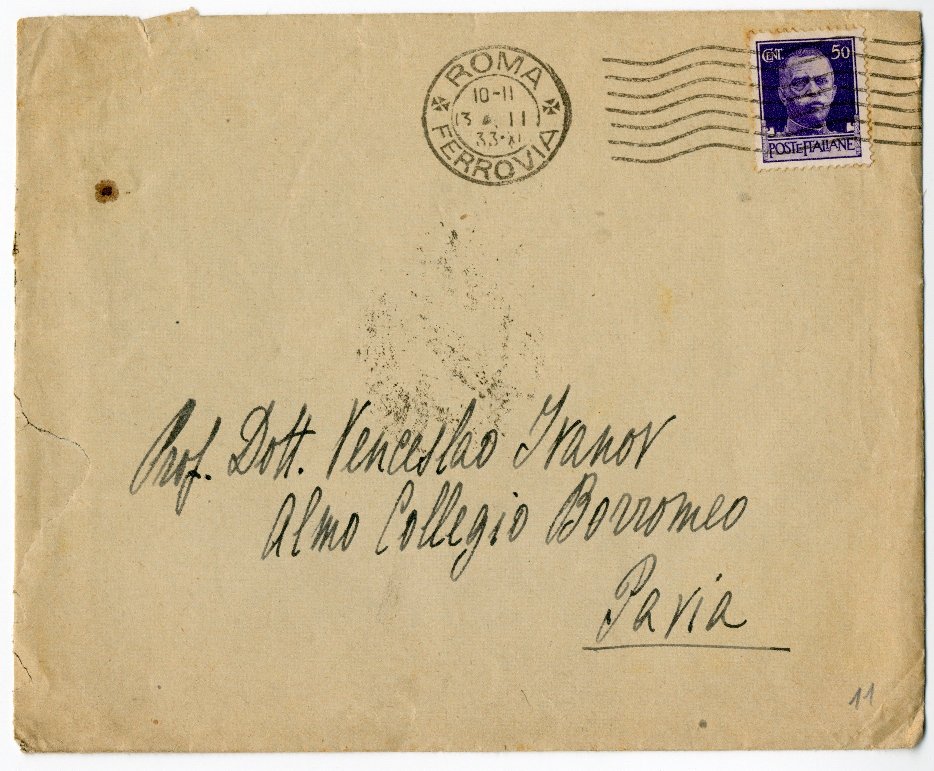 ROMA
10-11
13 II
33-XI
FERROVIA
CENT. 50
POSTE ITALIANE
Prof. Dott. Venceslao Ivanov
Almo Collegio Borromeo
Pavia
11